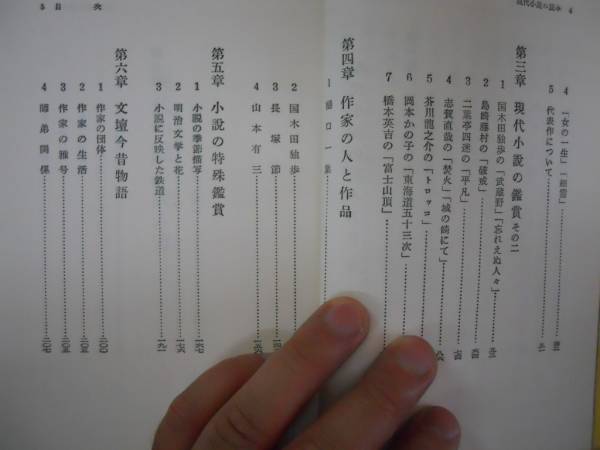 現代小説の読本 4
4 「女の一生」「細雪」
5 代表作について
第三章 現代小説の鑑賞 その二
1 国木田独歩の「武蔵野」「忘れえぬ人々」
2 島崎藤村の「破戒」
3 二葉亭四迷の「平凡」
4 志賀直哉の「焚火」「城の崎にて」
5 芥川龍之介の「トロッコ」
6 岡本かの子の「東海道五十三次」
7 橋本英吉の「富士山頂」
第四章 作家の人と作品
1 樋口一葉
5 目次
2 国木田独歩
3 長塚節
4 山本有三
第五章 小説の特殊鑑賞
1 小説の季節描写 一六七
2 明治文学と花
3 小説に反映した鉄道 一九一
第六章 文壇今昔物語
1 作家の団体 二〇〇
2 作家の生活 二〇五
3 作家の雅号 二〇五
4 師弟関係 二〇七